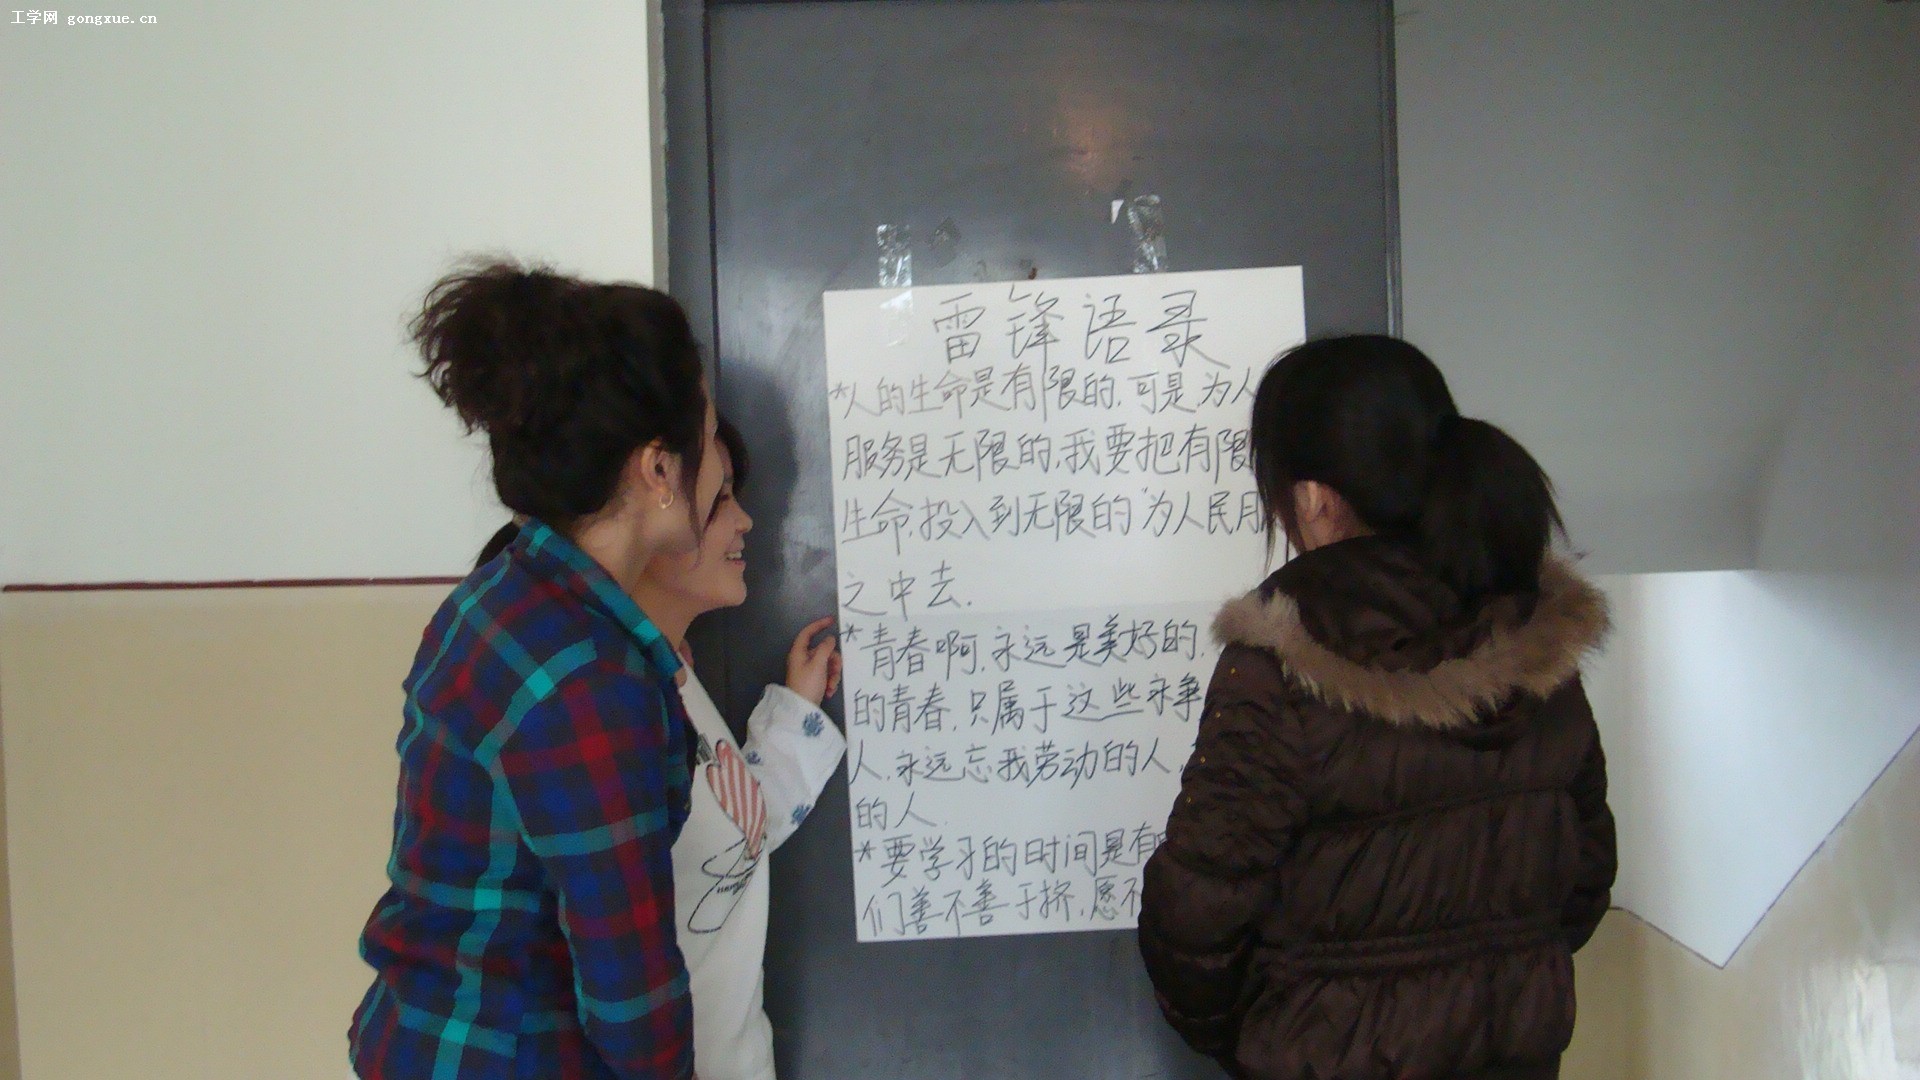 工学网 gongxue.cn
雷锋语录
*人的生命是有限的,可是,为人
服务是无限的,我要把有限
生命,投入到无限的"为人民服
之中去.
*青春啊,永远是美好的,
的青春,只属于这些永争
人,永远忘我劳动的人,
的人.
*要学习的时间是有
们善不善于挤,愿不